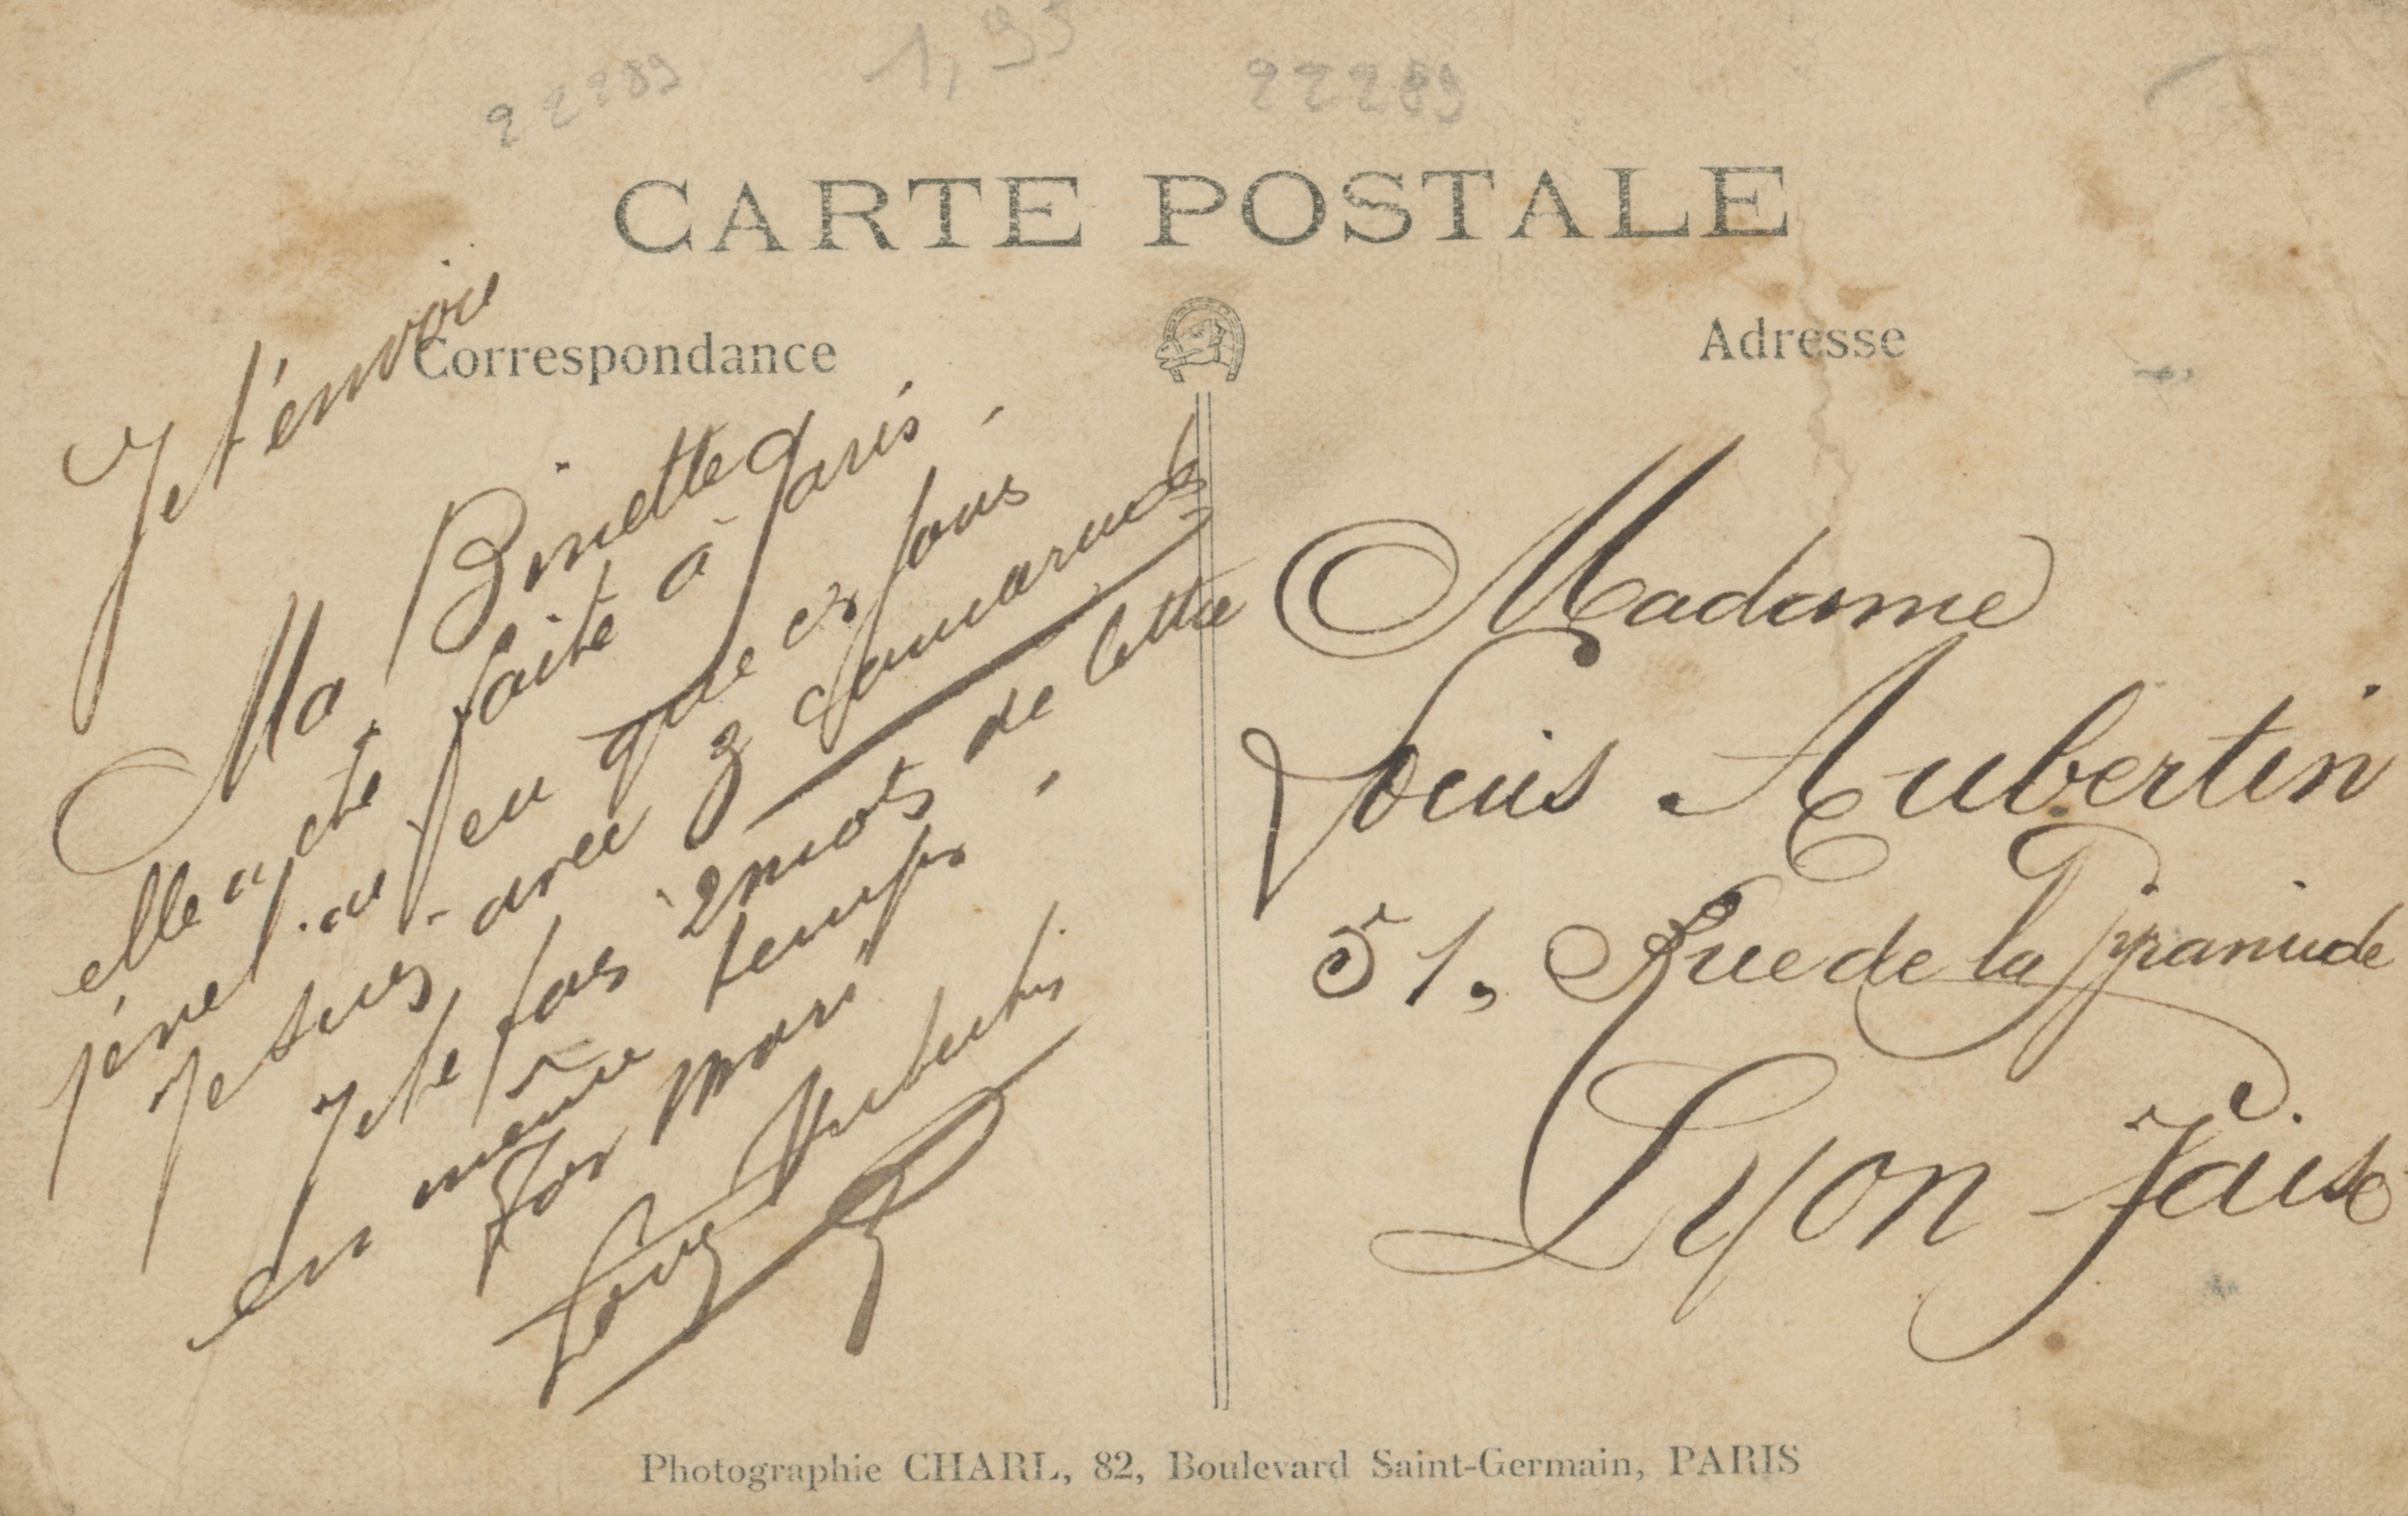 22289
1,95
22289
CARTE POSTALE
Correspondance
Adresse
Je t'envoie
Ma Binette
elle a été faite à Paris.
j'érel. au peu que es fous
Je suis - avec 3 camarades
Je te fais 2 mots de lettre
en même temps.
Ton mari
Louis Aubertin
Madame
Louis Aubertin
51, Rue de la Pyramide
Lyon Vaise
Photographie CHARL, 82, Boulevard Saint-Germain, PARIS